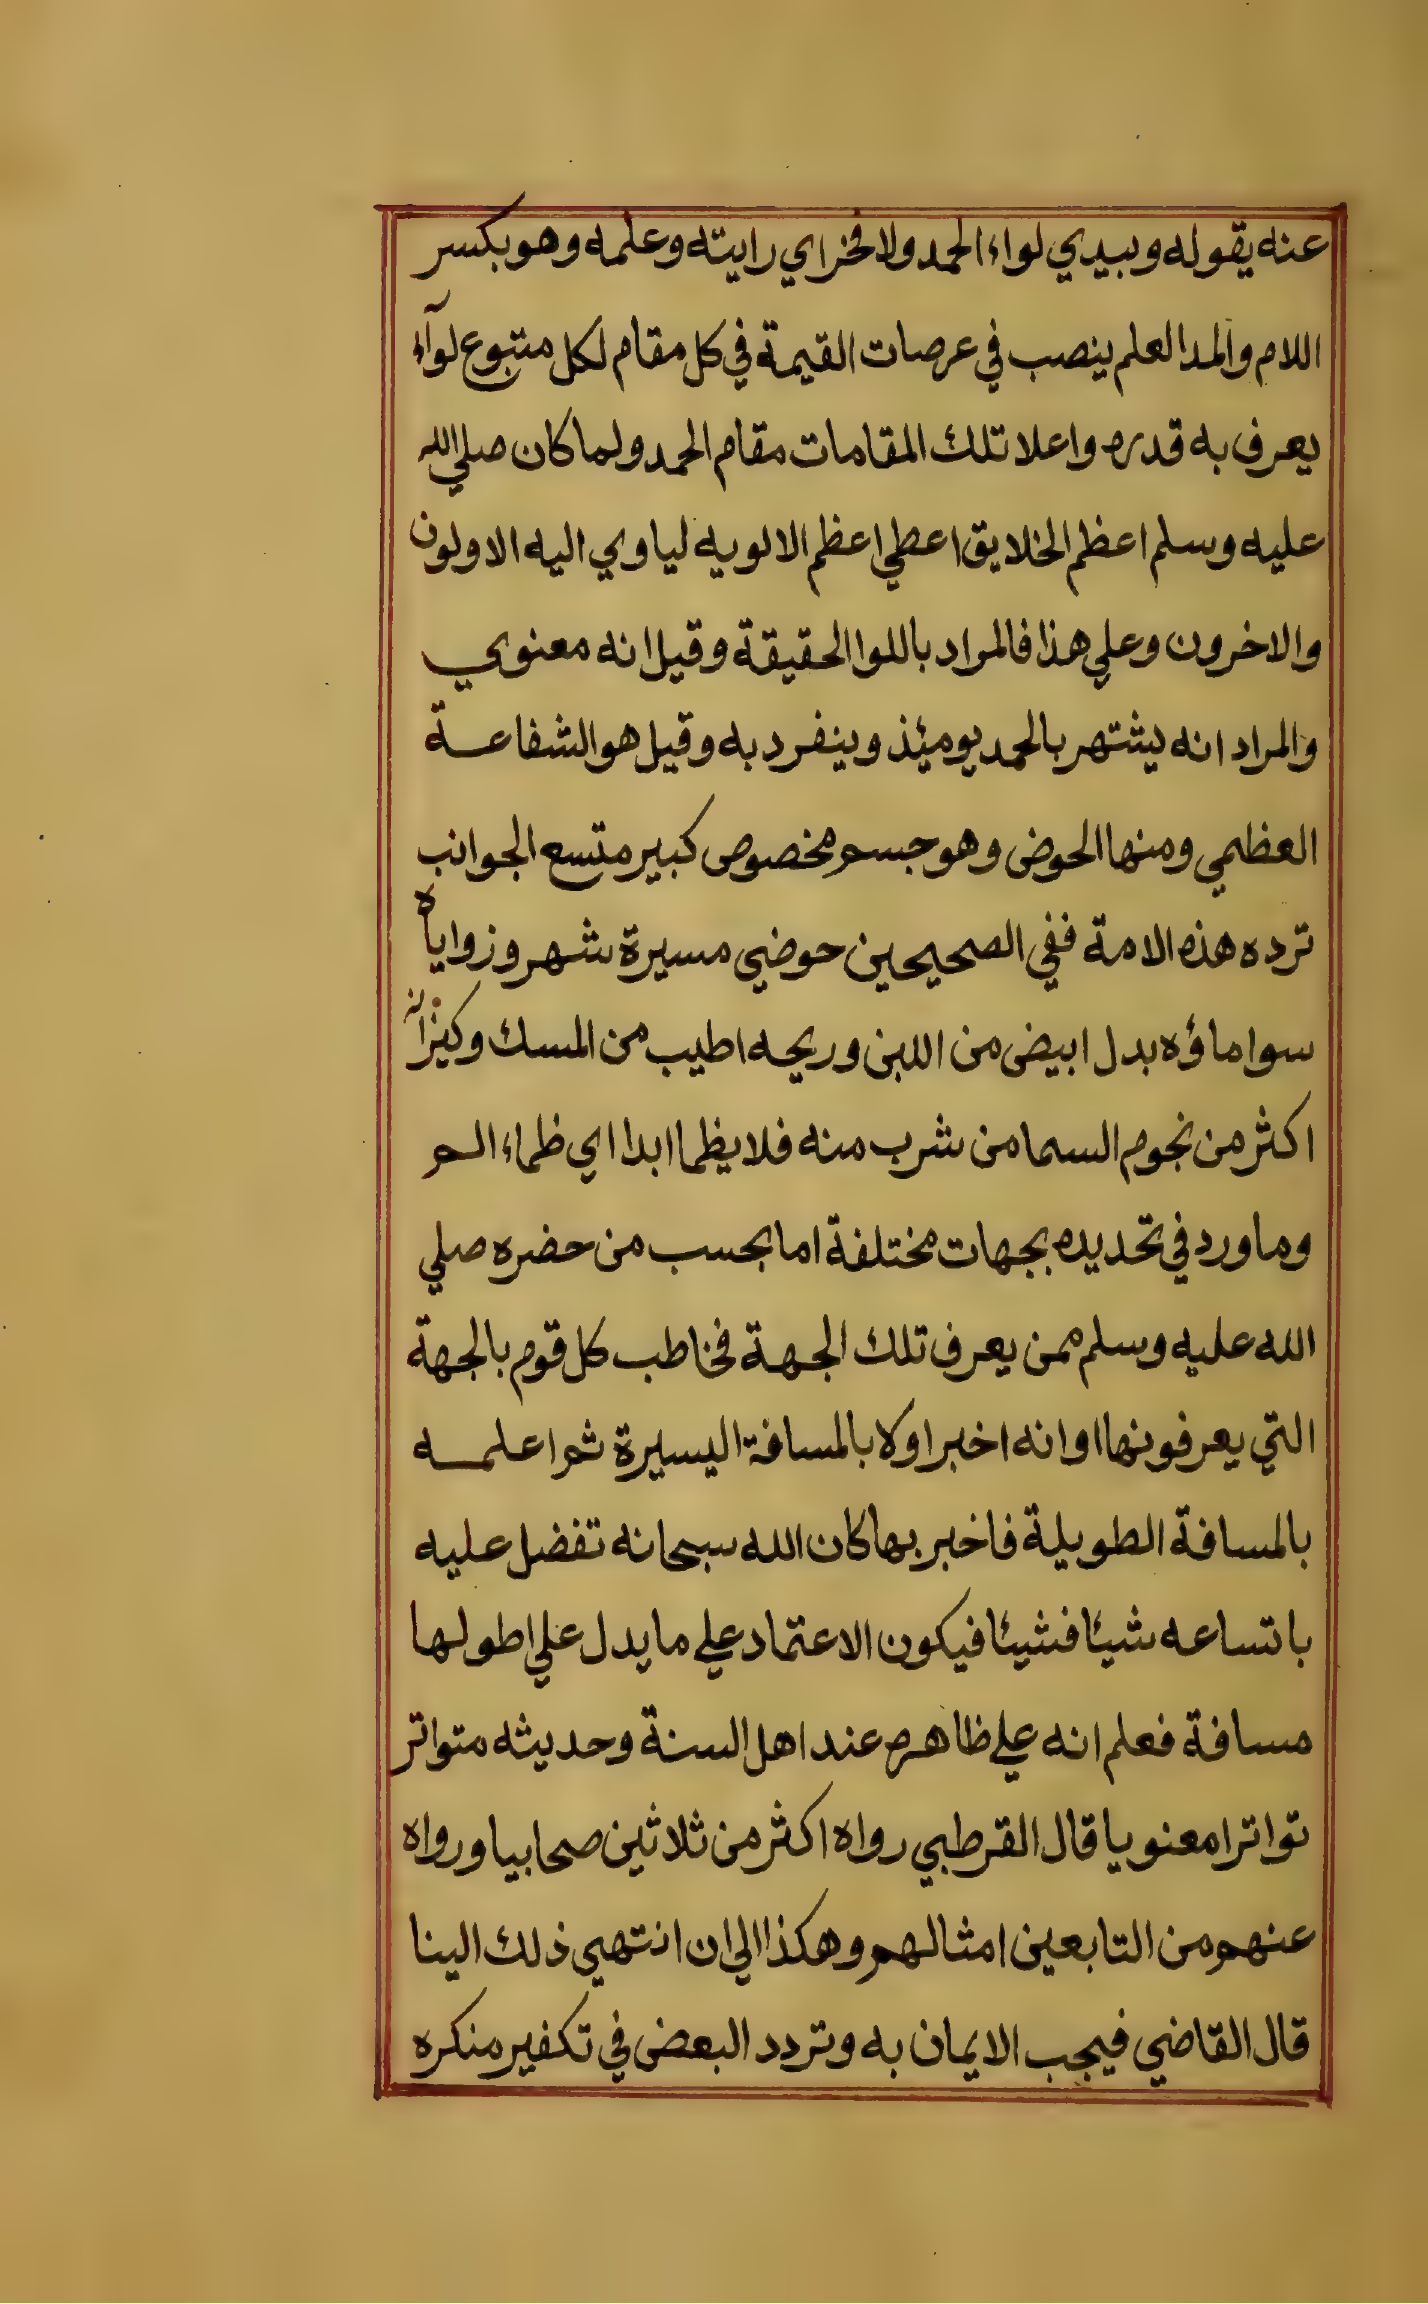 عنه يقوله وبيدي لواء الحمد ولا فخر اي رايته وعلمه وهو بكسر
اللام والمد العلم ينصب في عرصات القيمة في كل مقام لكل متبوع لوآء
يعرف به قدره واعلا تلك المقامات مقام الحمد ولما كان صلي الله
عليه وسلم اعظم الخلايق اعطي اعظم الالويه لياوي اليه الاولون
والاخرون وعلي هذا فالمراد باللوا الحقيقة وقيل انه معنوي
والمراد انه يشتهر بالحمد يومئذ وينفرد به وقيل هو الشفاعة
العظمي ومنها الحوض وهو جسم مخصوص كبير متسع الجوانب
ترده هذه الامة ففي الصحيحين حوضي مسيرة شهر وزواياه
سوا ماؤه بدل ابيض من اللبن وريحه اطيب من المسك وكيزانه
اكثر من نجوم السما من شرب منه فلا يظما ابدا اي ظماء الم
وما ورد في تحديده بجهات مختلفة اما بحسب من حضره صلي
الله عليه وسلم ممن يعرف تلك الجهة فخاطب كل قوم بالجهة
التي يعرفونها اوانه اخبر اولا بالمسافة اليسيرة ثم اعلمه
بالمسافة الطويلة فاخبر بها كان الله سبحانه تفضل عليه
باتساعه شيئا فشيئا فيكون الاعتماد علي ما يدل علي اطولها
مسافة فعلم انه علي ظاهره عند اهل السنة وحديثه متواتر
تواترا معنويا قال القرطبي رواه اكثر من ثلاثين صحابيا ورواه
عنهم من التابعين امثالهم وهكذا الي ان انتهي ذلك الينا
قال القاضي فيجب الايمان به وتردد البعض في تكفير منكره